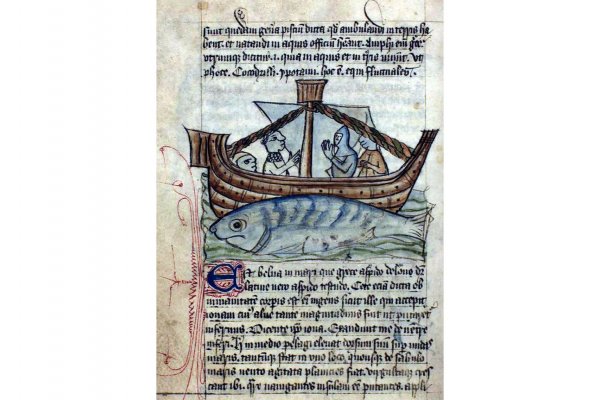 sunt quedam gen̄a pisciū dicta qđ ambulandi in terris ha
bent. et natandi in aquis officiū hēant. Amphi em̄ gre
utrumque dicitur .i. quia in aquis et in t̄ris uiuūt. vt
phoce. Cocodrilli. ypotami. hoc ē. equi fluctuales.
Est belua in mari que grece aspido delone dr̄
latine uero aspido testudo. Cete eciā dicta ob
inmanitatem corp̄is est eī ingens sicut ille qui accepit
ionam cuiꝰ aluꝰ tante magnitudinis fuit ut putaret
infernus. Dicente ip̄o iona. Exaudiuit me de uentre
inferi. in medio pelagi eleuat dorsum suū sup undas
maris. tantūque stat in uno loco. quousque de sabulo
maris uento agitata planicies fiat. uirgultaque cres
cant ibi. nauigantes insulam eē putantes. appli